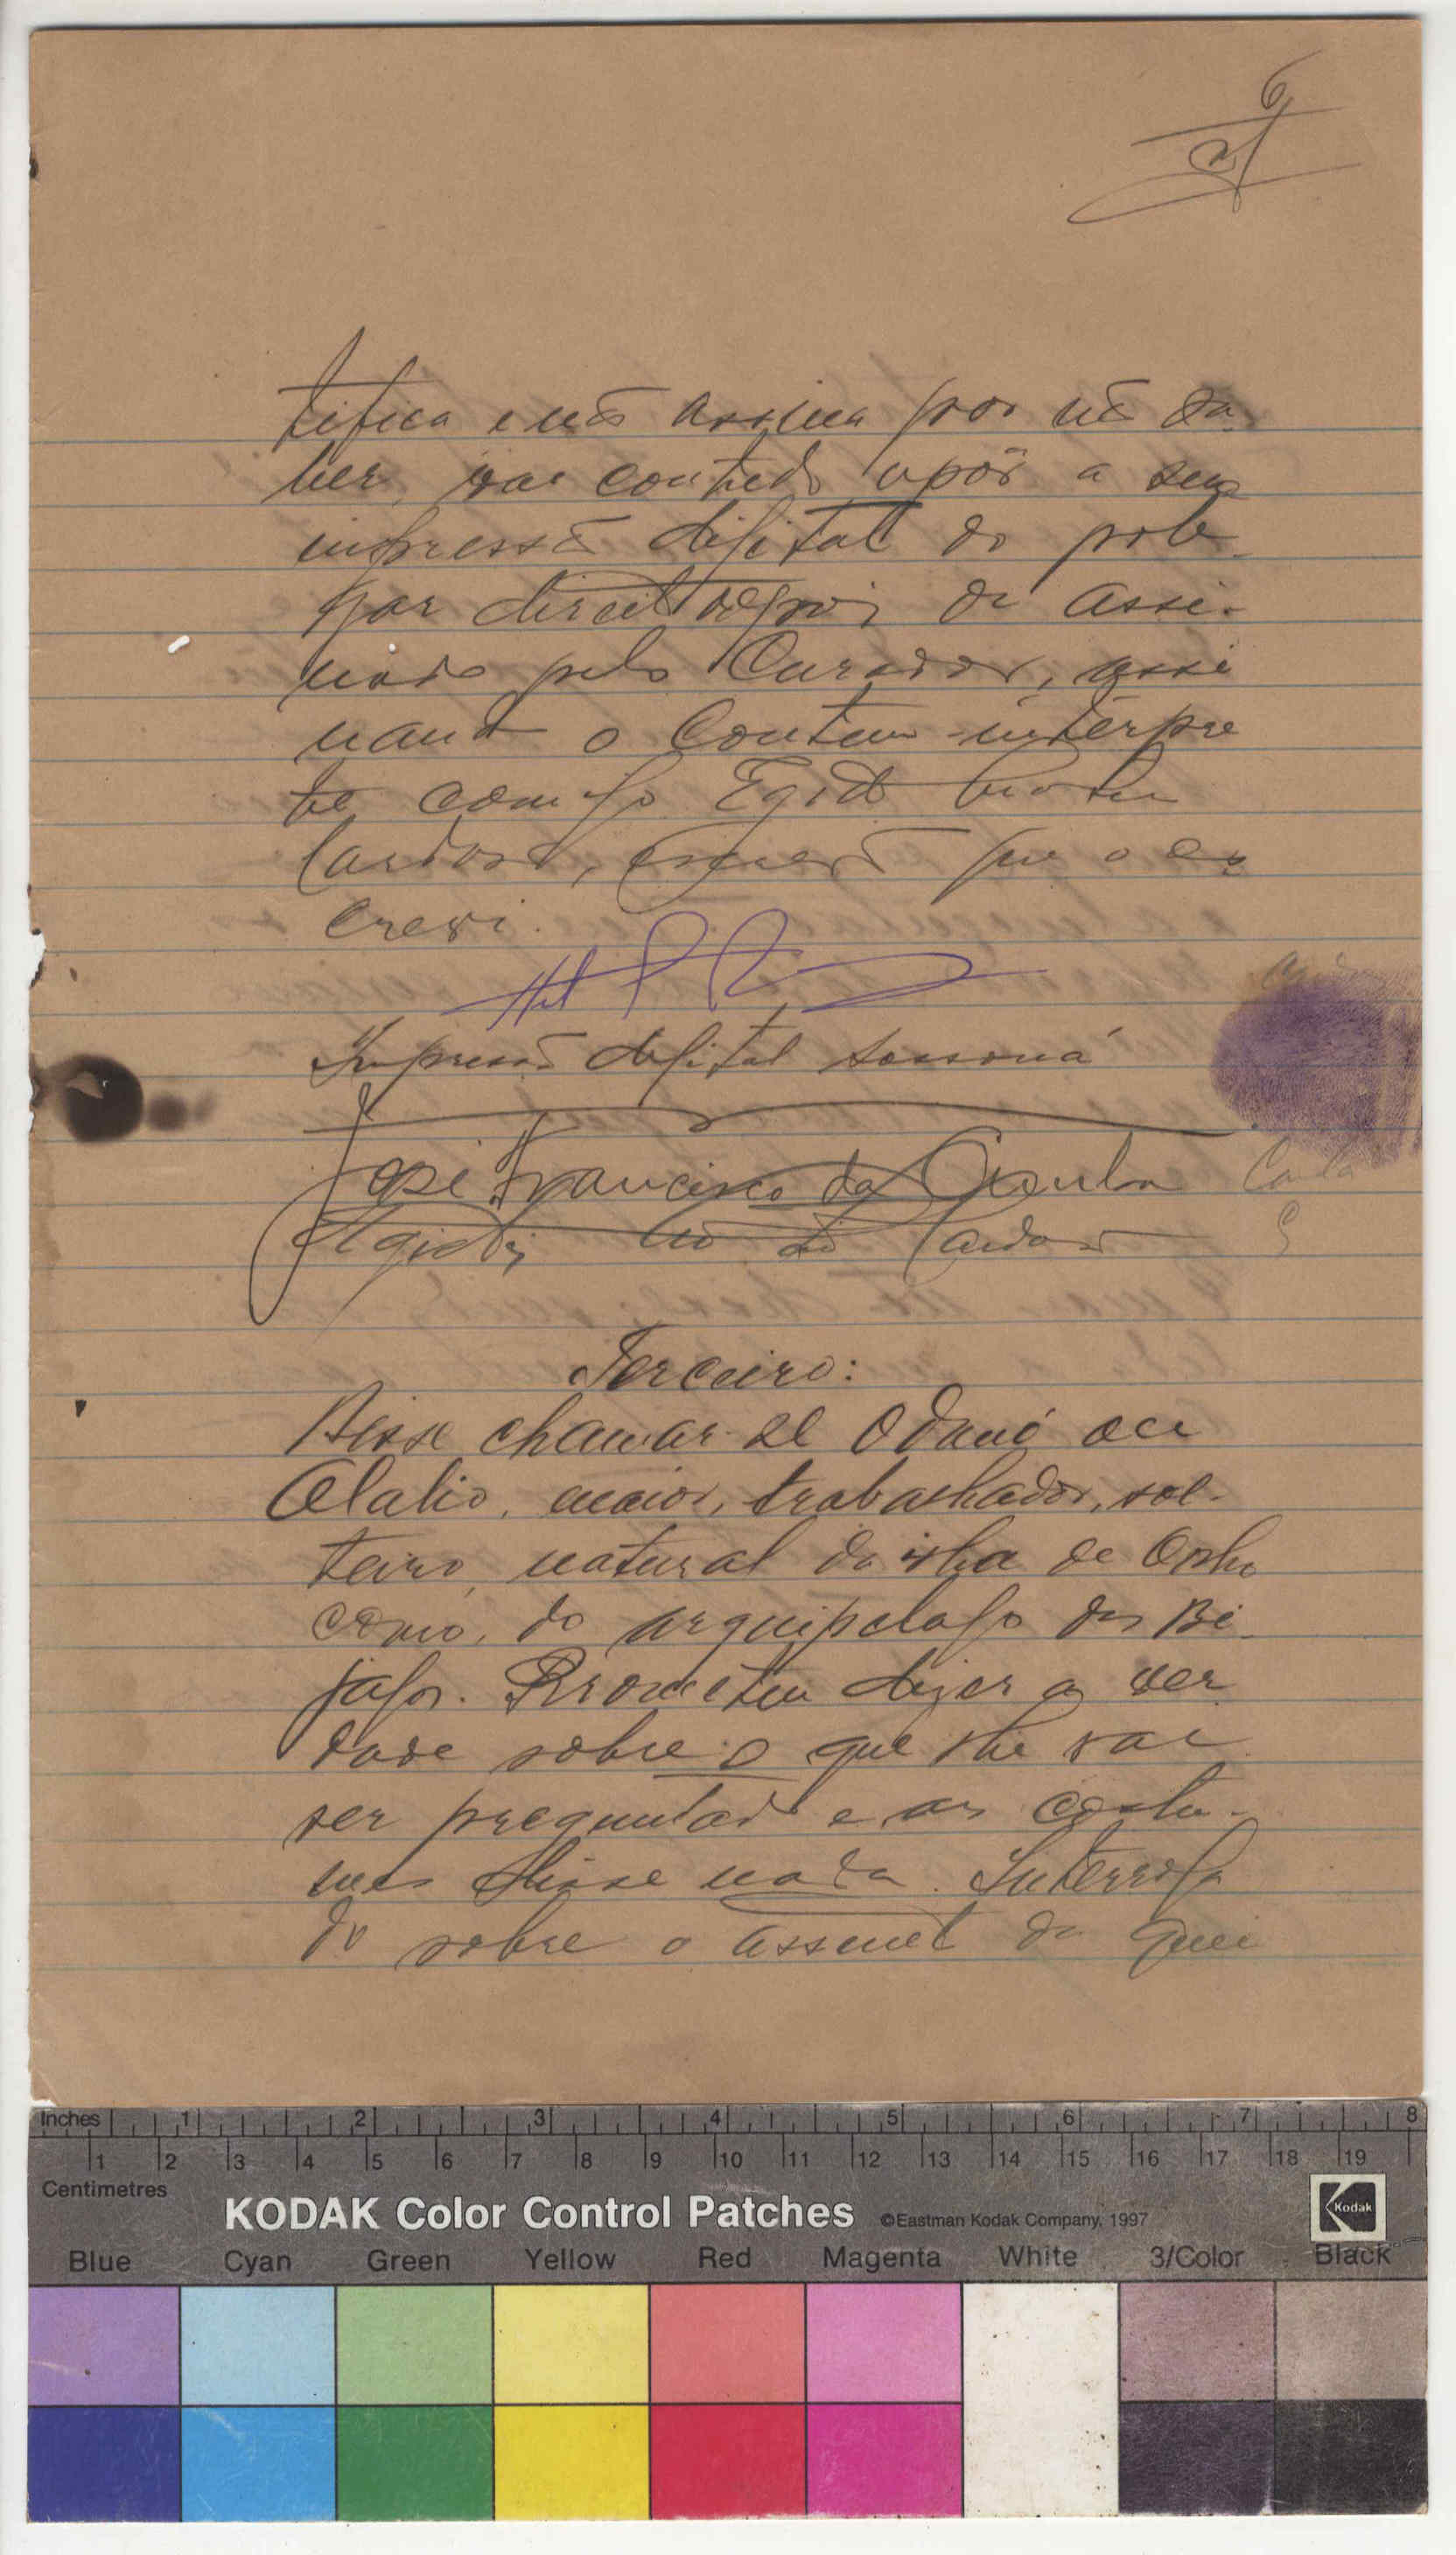 6
tifica e não assina por não sa-
ber, vae contudo apôr a sua
impressão digital do pole-
gar direito depois de assi-
nado pelo Curador, assi
nando o Contem intérpre
te comigo Egidio
Cardoso, escrivão que o es
crevi.
Impressão digital Sossoná
José Francisco da
Egidio Cardoso
Terceiro:
Disse chamar-se Odunó ou
Olalio, maior, trabalhador, sol-
teiro, natural da ilha de Orho
como, do arquipelago dos Bi-
jagos. Prometeu dizer a ver
dade sobre o que lhe vae
ser preguntado e aos costu-
mes disse nada. Interroga
do sobre o assunto da quei
Inches 1 2 3 4 5 6 7 8
1 2 3 4 5 6 7 8 9 10 11 12 13 14 15 16 17 18 19
Centimetres
KODAK Color Control Patches ©Eastman Kodak Company, 1997 Kodak
Blue Cyan Green Yellow Red Magenta White 3/Color Black